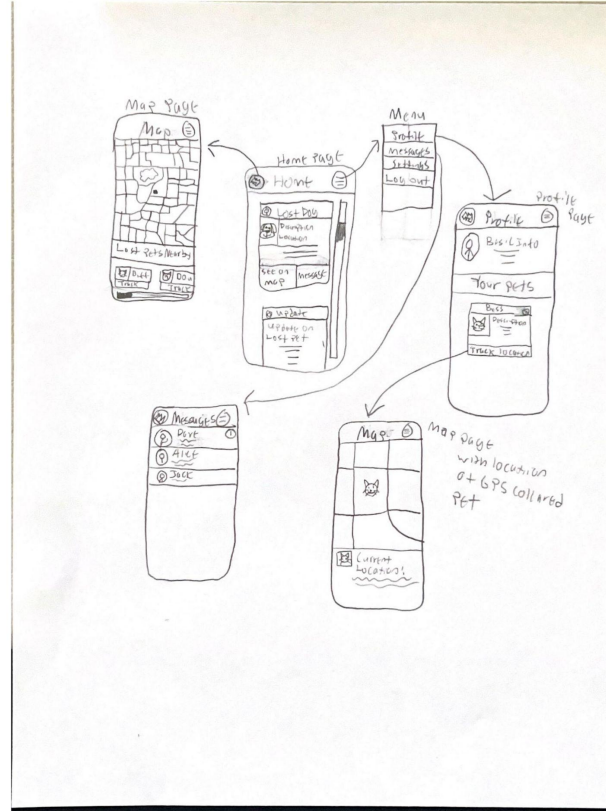 Map Page
Map
Lost Pets Nearby
Track
Track
Home Page
Home
Lost Dog
Description
Location
See on
Map
Message
Update
Update on
Lost Pet
Menu
Profile
Messages
Settings
Log out
Profile Page
Profile
Basic Info
Your Pets
Description
Track location
Messages
Dave
Alex
Jack
Map
Current
Location:
Map Page
with location
of GPS collared
Pet